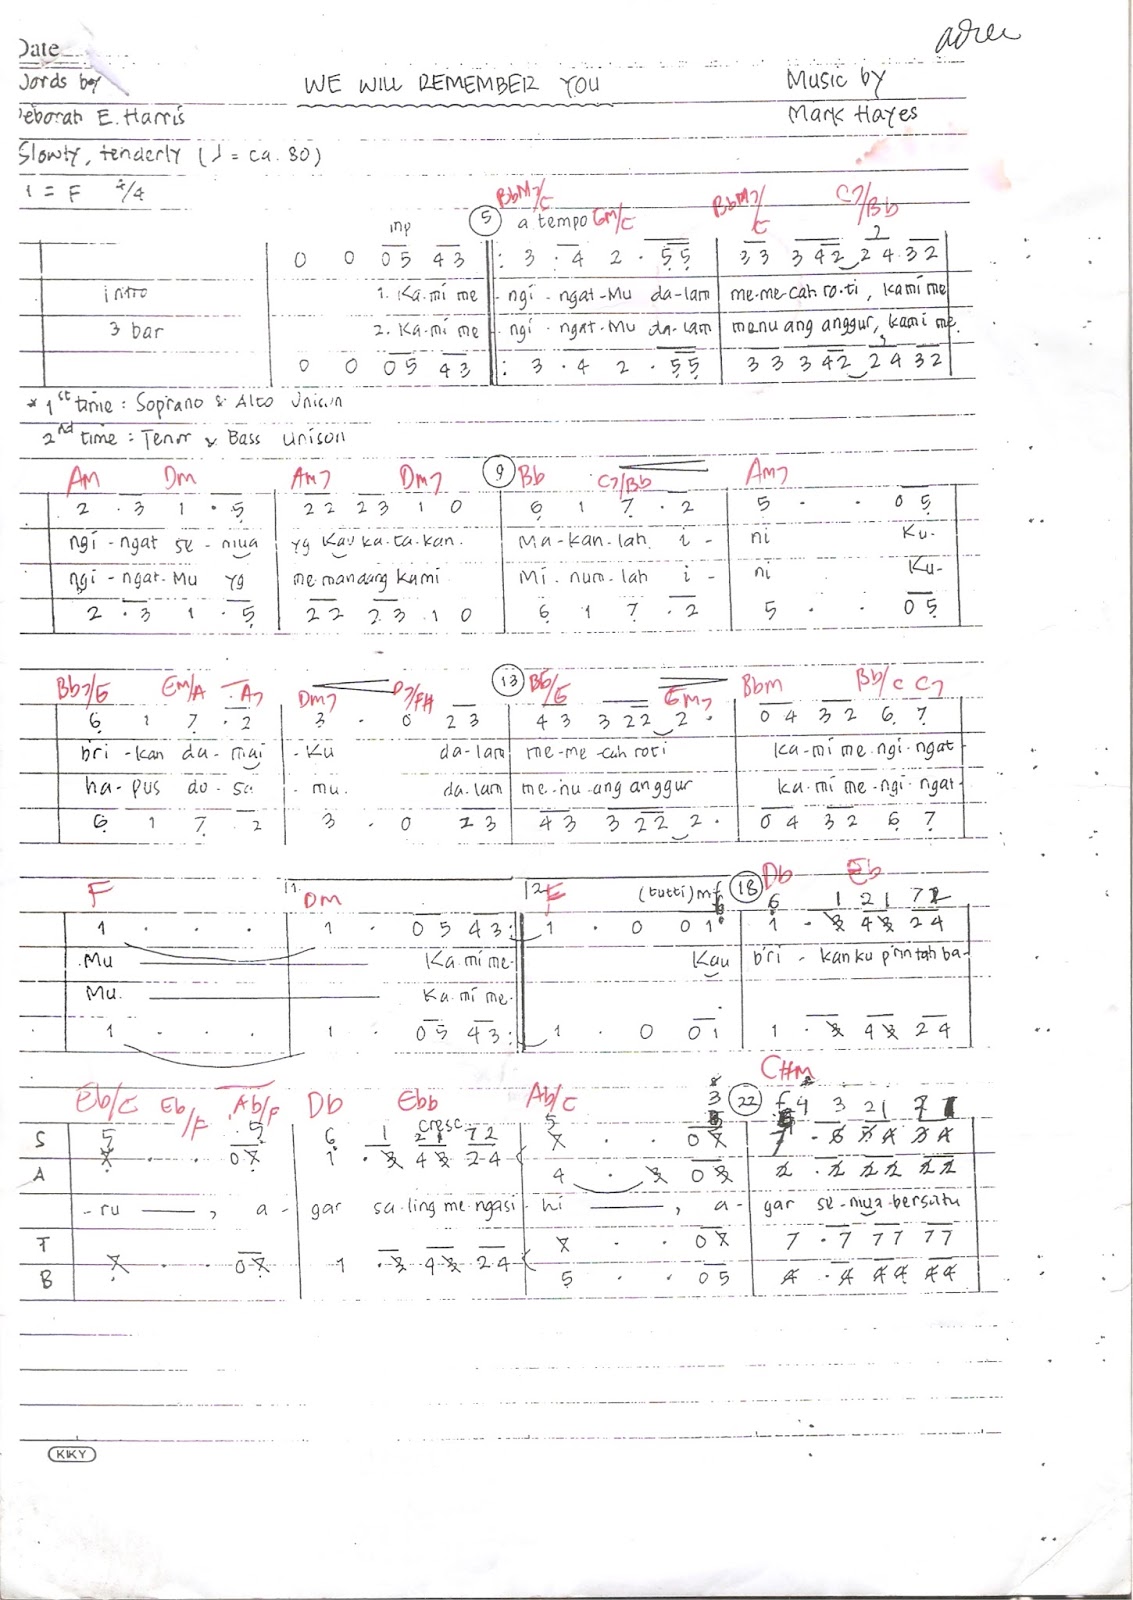 adree
Date
Words by WE WILL REMEMBER YOU Music by
Deborah E. Harris Mark Hayes
Slowly, tenderly (♩ = ca. 80)
1 = F 4/4
BbM7/C Gm/C BbM7/C C7/Bb
mp 5 a tempo
0 0 05 43 : 3 . 4 2 . 55 33 342 2432
intro 1. Ka.mi me - ngi - ngat-Mu da-lam me-me-cah ro.ti, kami me
3 bar 2. Ka-mi me - ngi - ngat-Mu da-lam menu ang anggur, kami me.
0 0 05 43 : 3 . 4 2 . 55 33 342 2432
* 1st time : Soprano & Alto Unison
2nd time : Tenor & Bass unison
Am Dm Am7 Dm7 9 Bb C7/Bb Am7
2 . 3 1 . 5 22 23 1 0 6 1 7 . 2 5 . . 05
ngi - ngat se - mua yg Kau ka-ta-kan. Ma-kan-lah i - ni Ku-
ngi - ngat-Mu yg me-mandang kami Mi-num-lah i - ni Ku-
2 . 3 1 . 5 22 23 1 0 6 1 7 . 2 5 . . 05
Bb7/G Em/A A7 Dm7 D7/F# 13 Bb/G Gm7 Bbm Bb/C C7
6 1 7 . 2 3 . 0 23 43 322 2 . 04 32 6 7
bri - kan da - mai - Ku da-lam me-me-cah roti ka-mi me-ngi-ngat
ha-pus do-sa - mu. da-lam me-nu-ang anggur ka-mi me-ngi-ngat
6 1 7 . 2 3 . 0 23 43 322 2 . 04 32 6 7
F 1. Dm 2. F (tutti) mf 18 Db Eb
6 1 21 72
1 . . . 1 . 05 43 : 1 . 0 01 1 . 3 43 24
Mu Ka.mi me- Kau bri - kan ku printah ba-
Mu. Ka.mi me-
1 . . . 1 . 05 43 : 1 . 0 01 1 . 3 43 24
Eb/C Eb/F Ab/F Db Ebb Ab/C C#m
cresc. 22 f 4 3 21 71
S 5 . . 05 6 1 21 72 5
A 1 . 3 43 24 4 . 3 0
- ru , a - gar sa-ling me-ngasi - hi , a - gar se-mua bersatu
T 7 . . 07 7 . 7 77 77
B 7 . . 07 1 . 3 43 24 5 . . 05 4 . 4 44 44
KIKY